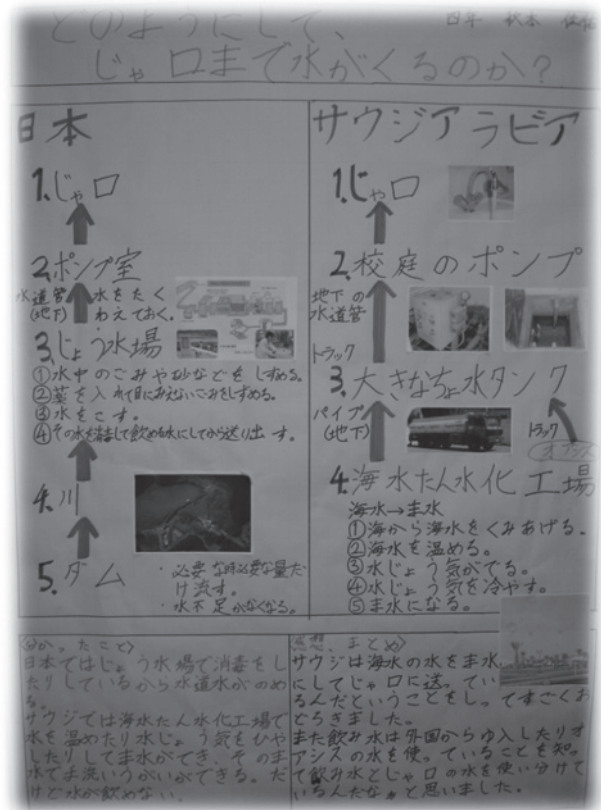 どのようにして、
じゃ口まで水がくるのか?
四年
日本
1.じゃ口
2.ポンプ室
水道管 水をたく
(地下) わえておく。
3.じょう水場
①水中のごみや砂などをしずめる。
②薬を入れて目にみえないごみをしずめる。
③水をこす。
④その水を消毒して飲める水にしてから送り出す。
4.川
5.ダム
・必要な時必要な量だ
け流す。
・水不足がなくなる。
サウジアラビア
1.じゃ口
2.校庭のポンプ
地下の
水道管
トラック
3.大きなちょ水タンク
パイプ
(地下)
トラック
オアシス
4.海水たん水化工場
海水→ま水
①海から海水をくみあげる。
②海水を温める。
③水じょう気がでる。
④水じょう気を冷やす。
⑤ま水になる。
〈分かったこと〉
日本ではじょう水場で消毒をし
たりしているから水道水がのめ
る。
サウジでは海水たん水化工場で
水を温めたり水じょう気をひや
したりしてま水ができ、そのま
水で手洗いうがいができる。だ
けど水が飲めない。
〈感想、まとめ〉
サウジは海水の水をま水
にしてじゃ口に送ってい
るんだということをしってすごくお
どろきました。
また飲み水は外国からゆ入したりオ
アシスの水を使っていることを知っ
て飲み水とじゃ口の水を使い分けて
いるんだなぁと思いました。